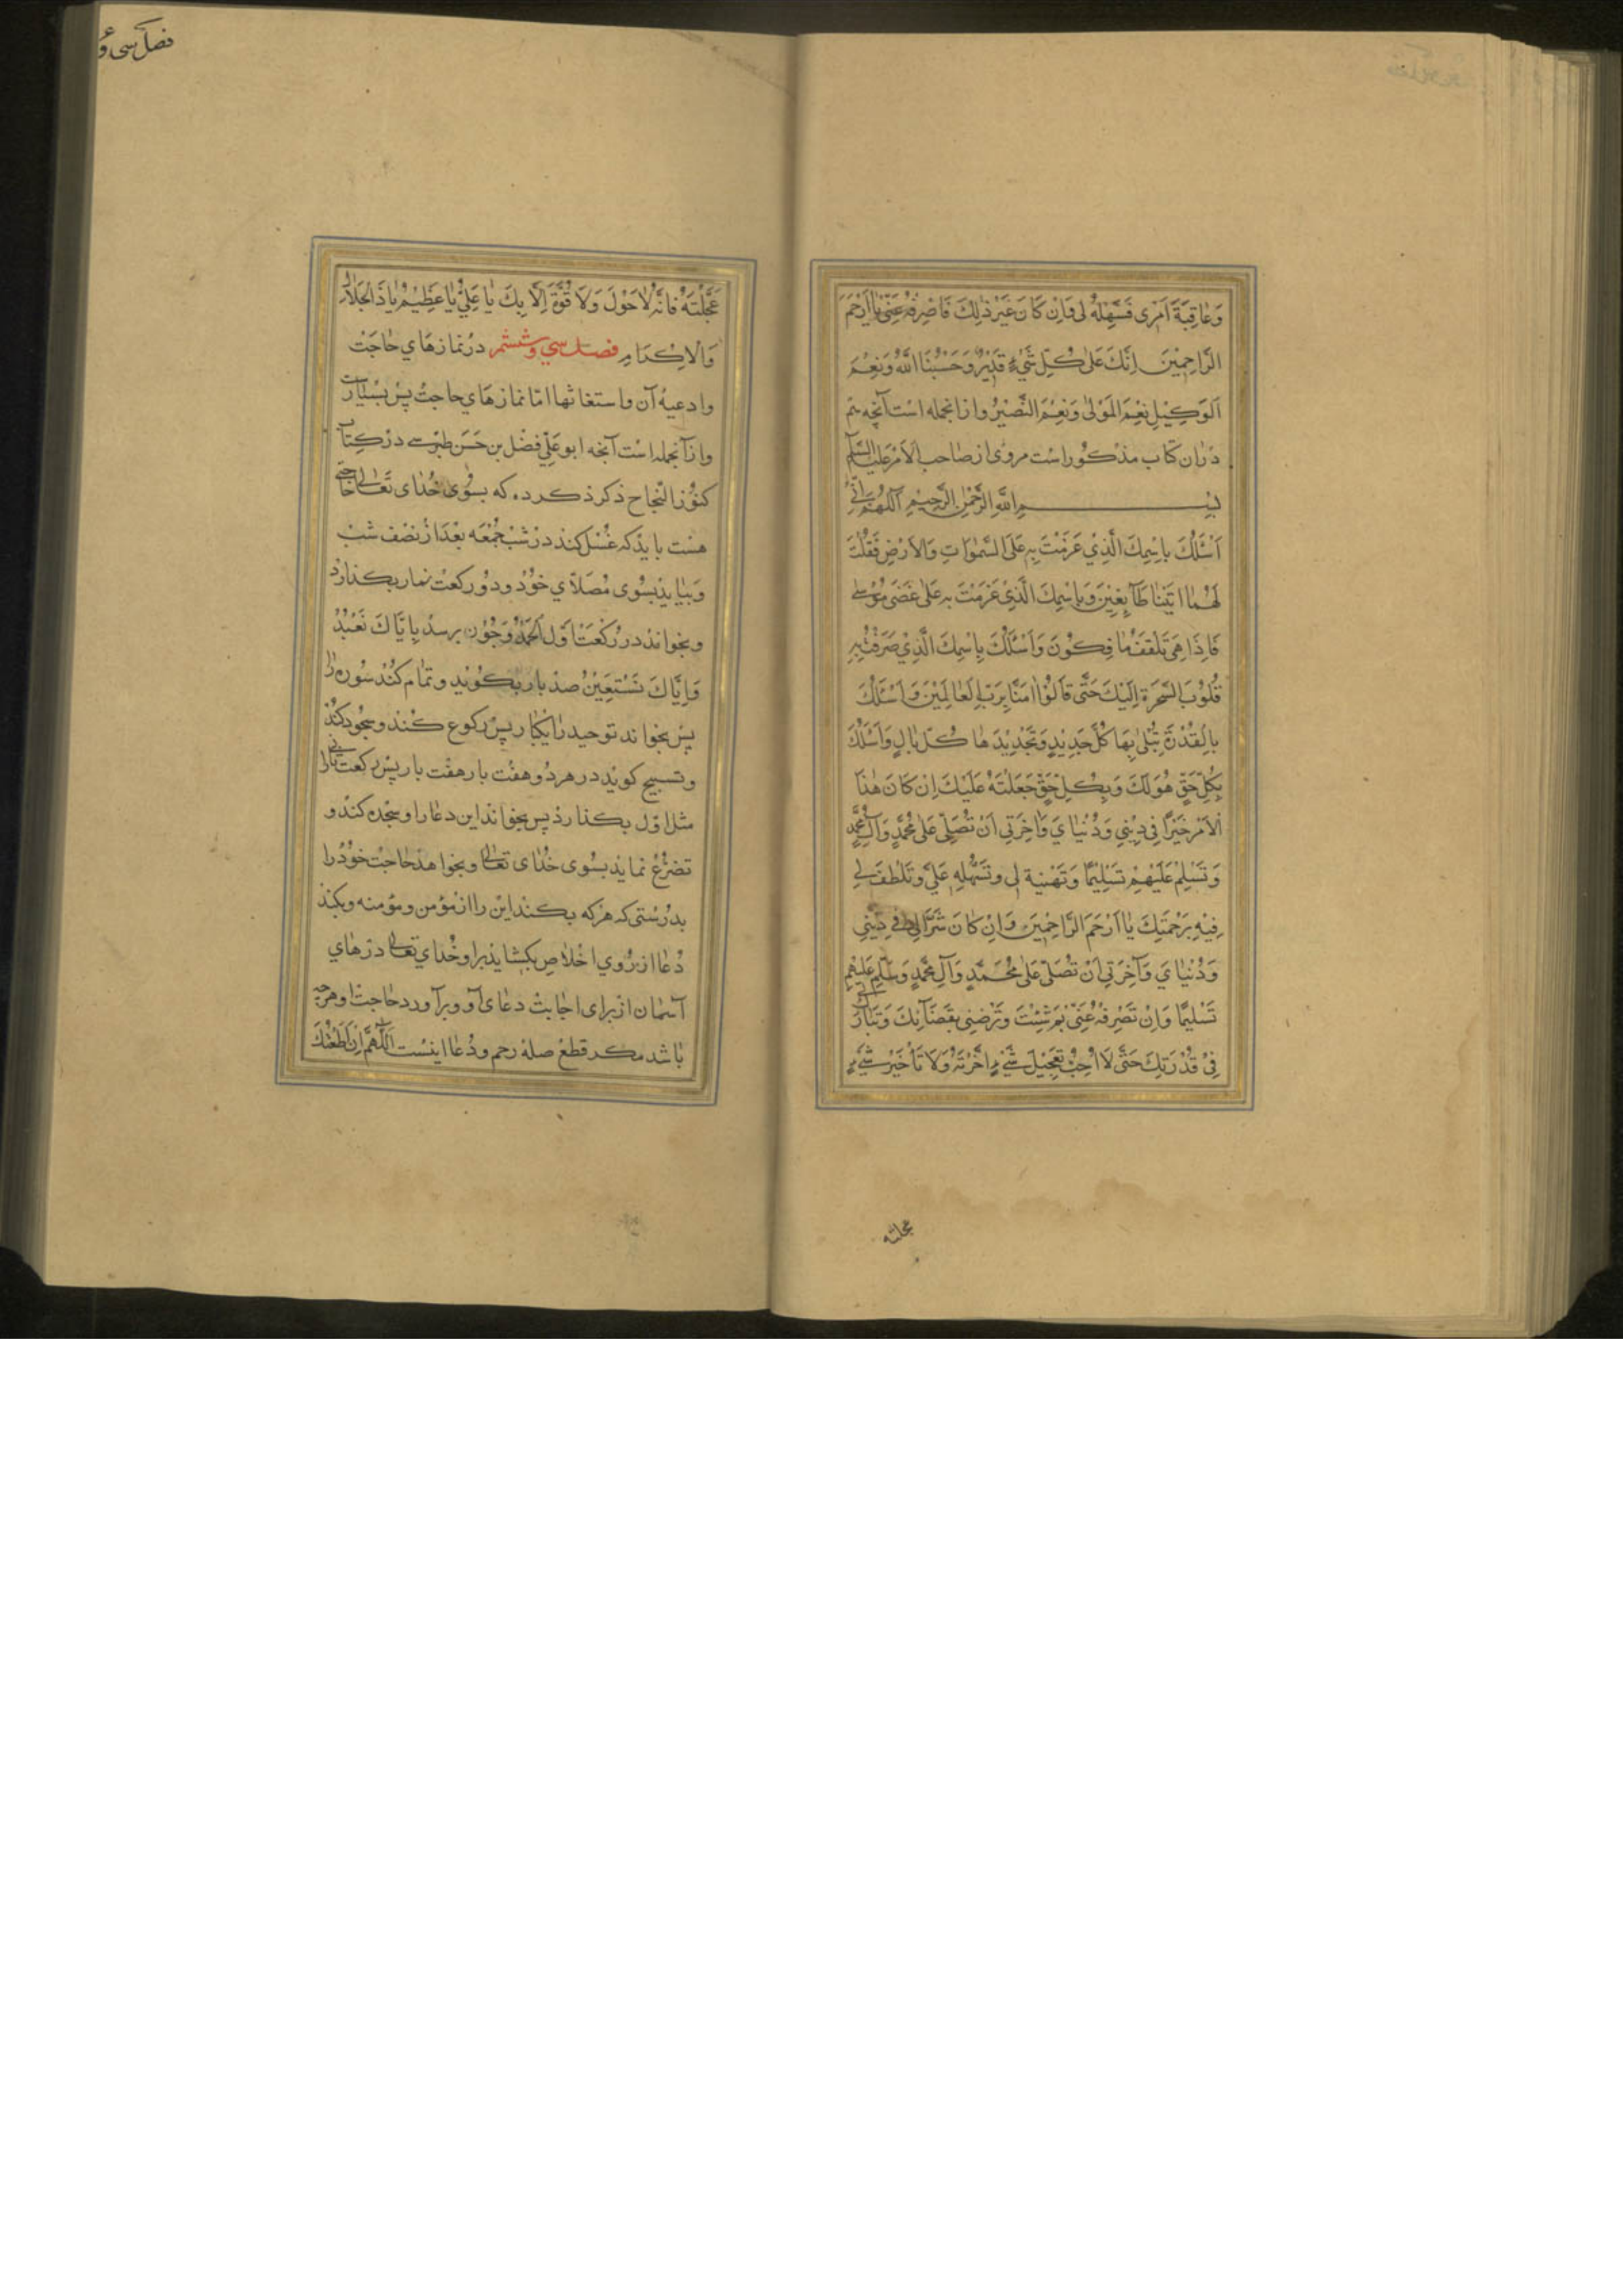 وَعَاقِبَةَ اَمْری فَسَهِّلْهُ لی وَاِنْ کَانَ غَیْرَ ذٰلِكَ فَاصْرِفْهُ عَنّی یٰا اَرْحَمَ
الرَّاحِمِینَ اِنَّكَ عَلیٰ کُلِّ شَیْءٍ قَدِیْرٌ وَحَسْبُنَا اللّٰهُ وَنِعْمَ
اَلْوَکِیْلِ نِعْمَ الْمَوْلیٰ وَنِعْمَ النَّصِیْرُ وازانجمله است آنچه
دران کتاب مذکور است مروی از صاحب الامر علیه السلم
بِسْمِ اللّٰهِ الرَّحْمٰنِ الرَّحِیْمِ اَللّٰهُمَّ اِنّی
اَسْئَلُكَ بِاسْمِكَ الَّذِیْ عَزَمْتَ بِهِ عَلَی السَّمٰوَاتِ وَالْاَرْضِ فَقُلْتَ
لَهُمَا ائْتِیَا طَآئِعِیْنَ وَبِاسْمِكَ الَّذِیْ عَزَمْتَ بِهِ عَلیٰ عَصَی مُوْسٰی
فَاِذَا هِیَ تَلْقَفُ مَا یَافِکُوْنَ وَاَسْئَلُكَ بِاسْمِكَ الَّذِیْ صَرَفْتَ بِهِ
قُلُوْبَ السَّحَرَةِ اِلَیْكَ حَتّٰی قَالُوْا اٰمَنَّا بِرَبِّ الْعَالَمِیْنَ وَاَسْئَلُكَ
بِالْقُدْرَةِ تُبْلیٰ بِهَا کُلَّ جَدِیْدٍ وَتُجَدِّدُ بِهَا کُلَّ بَالٍ وَاَسْئَلُكَ
بِکُلِّ حَقٍّ هُوَ لَكَ وَبِکُلِّ حَقٍّ جَعَلْتَهُ عَلَیْكَ اِنْ کَانَ هٰذَا
الْاَمْرُ خَیْرًا فِی دِیْنِی وَدُنْیَایَ وَاٰخِرَتِی اَنْ تُصَلِّیَ عَلیٰ مُحَمَّدٍ وَآلِ مُحَمَّدٍ
وَتُسَلِّمَ عَلَیْهِمْ تَسْلِیْمًا وَتَهْنِیَة لی وَتُسَهِّلَهِ عَلَیَّ وَتَلَطَّفَ لِی
فِیْهِ بِرَحْمَتِكَ یَا اَرْحَمَ الرَّاحِمِینَ وَاِنْ کَانَ شَرًّا لِی فِی دِیْنِی
وَدُنْیَایَ وَآخِرَتِی اَنْ تُصَلِّیَ عَلیٰ مُحَمَّدٍ وَآلِ مُحَمَّدٍ وَتُسَلِّمَ عَلَیْهِمْ
تَسْلِیمًا وَاِنْ تَصْرِفَهُ عَنّی بِمَ شِئْتَ وَتُرْضِنِی بِقَضَآئِكَ وَتُبَارِكَ لِی
فِیْ قُدْرَتِكَ حَتّٰی لَا اُحِبُّ تَعْجِیْلَ شَیْءٍ اَخَّرْتَهُ وَلَا تَأْخِیْرَ شَیْءٍ
عجلته
فصل سی و
عَجَّلْتَهُ فَاِنَّهُ لَاحَوْلَ وَلَا قُوَّةَ اِلَّا بِكَ یٰا عَلِیُّ یٰا عَظِیْمُ یٰا ذَالْجَلَالِ
وَالْاِکْرَامِ فصل سی و ششم در نمازهای حاجت
وادعیهٔ آن واستغاثها اما نمازهای حاجت پس بسیارست
وازآنجمله است آنچه ابوعلی فضل بن حسن طبرسے در کتاب
کنوز النجاح ذکر کرده که بسوی خدای تعالی حاجتی
هست باید که غسل کند در شب جمعه بعد از نصف شب
وبیاید بسوی مصلای خود ودو رکعت نماز بکذارد
وبخواند در رکعت اول الحمد وچون برسد بِاِیَّاكَ نَعْبُدُ
وَاِیَّاكَ نَسْتَعِیْنُ صد بار بکوید وتمام کند سوره را
پس بخواند توحید را یکبار پس رکوع کند وسجود کند
وتسبیح کوید در هر دو هفت بار هفت بار پس رکعت ثانی را
مثل اول بکذارد پس بخواند این دعا را وسجده کند و
تضرع نماید بسوی خدای تعالی وبخواهد حاجت خود را
بدرستی که هر که بکند این را از مؤمن ومؤمنه وبکند
دعا از روی اخلاص بکشاید برا و خدای تعالی درهای
آسمان از برای اجابت دعای او وبرآورد حاجت او هرچه
باشد مکر قطع صلهٔ رحم ودعا اینست اَللّٰهُمَّ اِنْ اَطَعْتُكَ